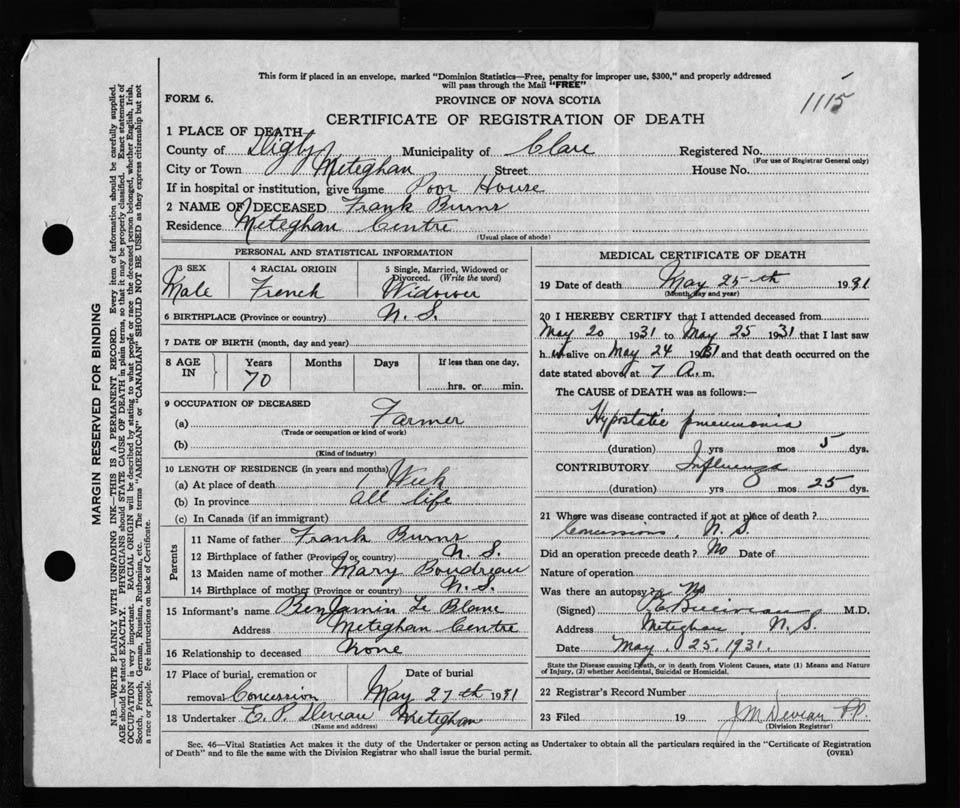 This form if placed in an envelope, marked "Dominion Statistics—Free, penalty for improper use, $300," and properly addressed
will pass through the Mail "FREE"
FORM 6.
PROVINCE OF NOVA SCOTIA
1115
CERTIFICATE OF REGISTRATION OF DEATH
1 PLACE OF DEATH
County of Digby Municipality of Clare Registered No.
(For use of Registrar General only)
City or Town Meteghan Street House No.
If in hospital or institution, give name Poor House
2 NAME OF DECEASED Frank Burns
Residence Meteghan Centre
(Usual place of abode)
PERSONAL AND STATISTICAL INFORMATION
3 SEX 4 RACIAL ORIGIN 5 Single, Married, Widowed or
Divorced. (Write the word)
Male French Widower
6 BIRTHPLACE (Province or country) N. S.
7 DATE OF BIRTH (month, day and year)
8 AGE IN Years Months Days If less than one day,
70 hrs. or min.
9 OCCUPATION OF DECEASED
(a) Farmer
(Trade or occupation or kind of work)
(b)
(Kind of industry)
10 LENGTH OF RESIDENCE (in years and months)
(a) At place of death 1 Week
(b) In province all life
(c) In Canada (if an immigrant)
Parents
11 Name of father Frank Burns
12 Birthplace of father (Province or country) N. S.
13 Maiden name of mother Mary Boudreau
14 Birthplace of mother (Province or country) N. S.
15 Informant's name Benjamin Le Blanc
Address Meteghan Centre
16 Relationship to deceased None
17 Place of burial, cremation or Date of burial
removal Concession May 27th 1931
18 Undertaker E. P. Deveau Meteghan
(Name and address)
MEDICAL CERTIFICATE OF DEATH
19 Date of death May 25th 1931
(Month, day and year)
20 I HEREBY CERTIFY that I attended deceased from
May 20 1931 to May 25 1931 that I last saw
h im alive on May 24 1931 and that death occurred on the
date stated above at 7 A. m.
The CAUSE OF DEATH was as follows:—
Hypostatic pneumonia
(duration) yrs mos 5 dys.
CONTRIBUTORY Influenza
(duration) yrs mos 25 dys.
21 Where was disease contracted if not at place of death?
Concessions, N. S.
Did an operation precede death? No Date of
Nature of operation
Was there an autopsy? No
(Signed) M.D.
Address Meteghan N. S.
Date May. 25. 1931.
State the Disease causing Death, or in death from Violent Causes, state (1) Means and Nature
of Injury, (2) whether Accidental, Suicidal or Homicidal.
22 Registrar's Record Number
23 Filed 19 J M Deveau P.P.
(Division Registrar)
Sec. 46—Vital Statistics Act makes it the duty of the Undertaker or person acting as Undertaker to obtain all the particulars required in the "Certificate of Registration
of Death" and to file the same with the Division Registrar who shall issue the burial permit. (OVER)
MARGIN RESERVED FOR BINDING
N.B.—WRITE PLAINLY WITH UNFADING INK—THIS IS A PERMANENT RECORD. Every item of information should be carefully supplied.
AGE should be stated EXACTLY. PHYSICIANS should STATE CAUSE OF DEATH in plain terms, so that it may be properly classified. Exact statement of
OCCUPATION is very important. RACIAL ORIGIN will be described by stating to what people or race the deceased person belonged, whether English, Irish,
Scotch, French, German, Russian, Ruthenian, etc. The terms "AMERICAN" or "CANADIAN" SHOULD NOT BE USED as they express citizenship but not
a race or people. See instructions on back of Certificate.